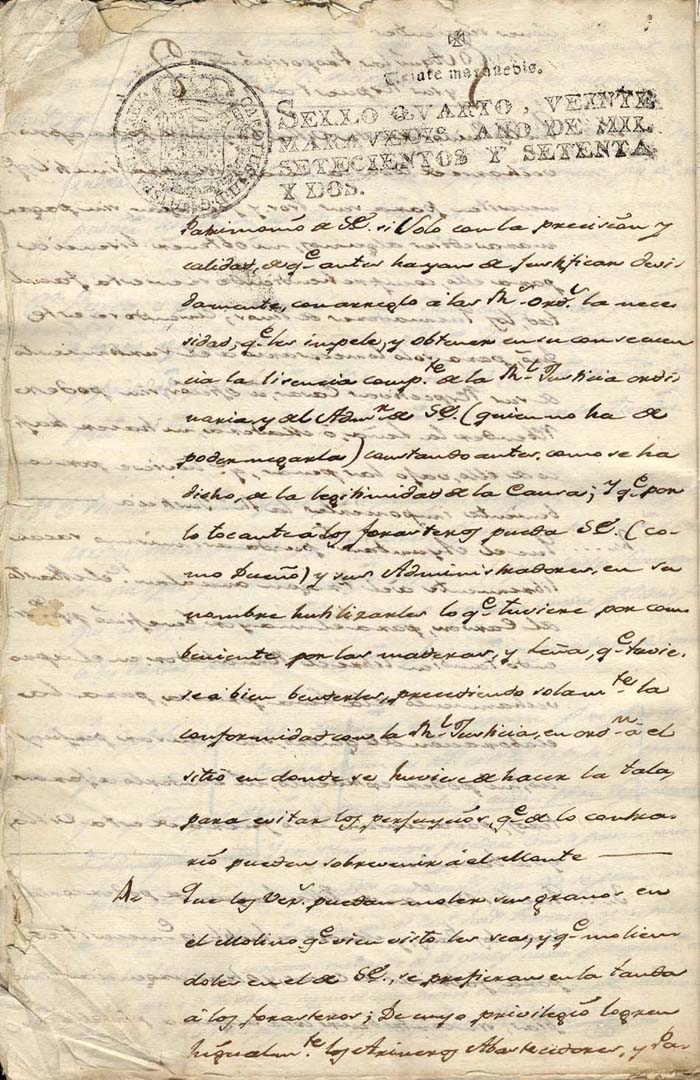 Veinte maravedis.
SELLO QVARTO, VEINTE
MARAVEDIS, AÑO DE MIL
SETECIENTOS Y SETENTA
Y DOS.
Patrimonio de SE. si Solo con la precision y
calidad, de qe. antes hayan de justificar devi
damente, con arreglo a las Rs. ords. la nece
sidad, qe. les impele, y obtener en su consecuen
cia la licencia compte. de la Rl. Justicia ordi
naria, y del Admor. de SE. (quien no ha de
poder negarlas) constando antes, como se ha
dicho, de la legitimidad de la Causa; Y qe. por
lo tocante à los forasteros pueda SE. (co
mo Dueño) y sus Administradores, en su
nombre huhilizarles lo qe. tuviere por com
beniente por las maderas, y leña, qe. tuvie
se à bien benderles, precediendo solamte. la
conformidad con la Rl. Justicia, en ordn. à el
sitio en donde se huviese de hacer la tala,
para evitar los perjuycios, qe. de lo contra
rio pueden sobrevenir à el Monte
Que los Vecs. puedan moler sus granos en
el Molino qe. vien visto les sea, y qe. molien
doles en el de SE., se prefieran en la tanda
à los forasteros; De cuyo privilegio logren
higualmte. los Arineros Abastecedores, y Pa